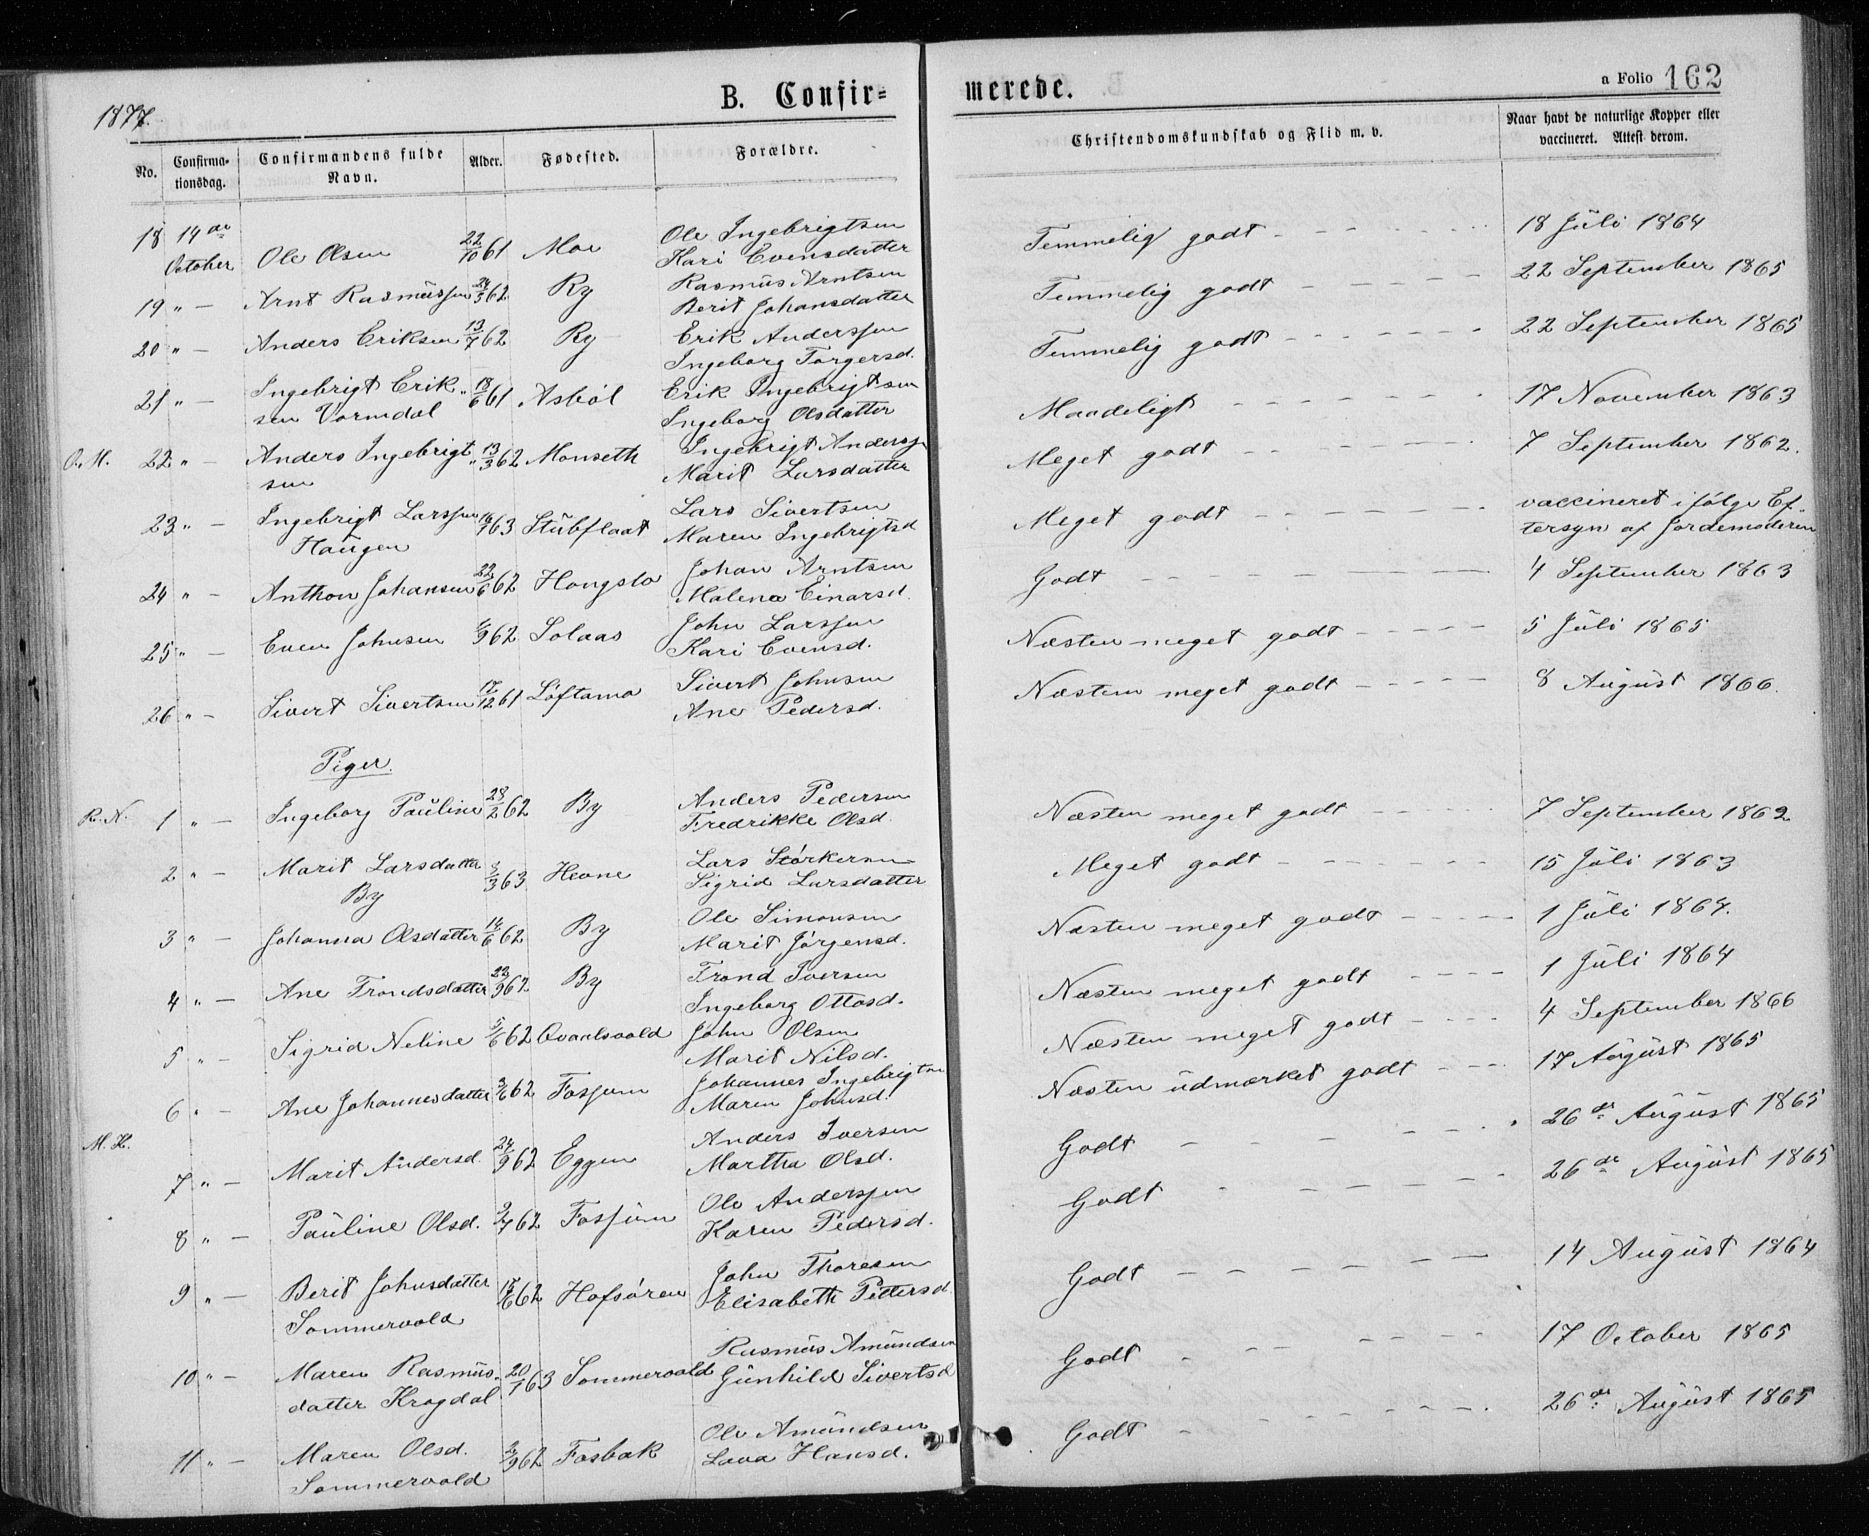 1877.
B. Confirmerede.
a Folio 162
No.
Confirmationsdag.
Confirmandens fulde Navn.
Alder.
Fødested.
Forældre.
Christendomskundskab og Flid m. v.
Naar havt de naturlige Kopper eller vaccineret. Attest derom.
18 14de October Ole Olsen 22/10 61 Moe Ole Ingebrigtsen Kari Evensdatter Temmelig godt 18 Juli 1864
19 " — Arnt Rasmussen 62 Ry Rasmus Arntsen Berit Johansdatter Temmelig godt 22 September 1865
20 " — Anders Eriksen 13/7 62 Ry Erik Anderssen Ingeborg Torgersd. Temmelig godt 22 September 1865
21 " — Ingebrigt Eriksen Vormdal 18/6 61 Asbøl Erik Ingebrigtsen Ingeborg Olsdatter Maadeligt 17 November 1863
O.M. 22 " — Anders Ingebrigtsen 13/3 62 Monseth Ingebrigt Anderss Marit Larsdatter Meget godt 7 September 1862.
23 " — Ingebrigt Larssen Haugen 63 Stubflaat Lars Sivertsen Maren Ingebrigtsd Meget godt vaccineret ifølge Eftersyn af Jordemoderen
24 " — Anthon Johansen 22/6 62 Hongslo Johan Arntsen Malena Einarsd. Godt 4 September 1863
25 " — Even Johnsen 62 Solaas John Larssen Kari Evensd. Næsten meget godt 5 Juli 1865
26 " — Sivert Sivertsen 17/12 61 Løftamo Sivert Johnsen Ane Pedersd. Næsten meget godt 8 August 1866.
Piger.
R.N. 1 " — Ingeborg Pauline 28/2 62 By Anders Pedersen Fredrikke Olsd. Næsten meget godt 7 September 1862
2 " — Marit Larsdatter By 63 Hevne Lars Størkersen Sigrid Larsdatter Meget godt 15 Juli 1863
3 " — Johanna Olsdatter 14/6 62 By Ole Simonsen Marit Jörgensd. Næsten meget godt 1 Juli 1864.
4 " — Ane Trondsdatter 22/9 62 By Trond Iversen Ingeborg Ottosd. Næsten meget godt 1 Juli 1864
5 " — Sigrid Neline 5/6 62 Qvaalsvold John Olsen Marit Nilsd. Næsten meget godt 4 September 1866
6 " — Ane Johannesdatter 3/6 62 Fossum Johannes Ingebrigtsn Maren Johnsd. Næsten udmærket godt 17 August 1865
7 " — Marit Andersd. 24/9 62 Eggen Anders Iversen Martha Olsd. Godt 26de August 1865
8 " — Pauline Olsd. 62 Fossum Ole Anderssen Karen Pedersd. Godt 26de August 1865
9 " — Berit Johnsdatter Sommervold 62 Hofsøren John Thoresen Elisabeth Pettersd. Godt 14 August 1864
10 " — Maren Rasmusdatter Krogdal 20/1 63 Sommervold Rasmus Amundsen Gunhild Sivertsd Godt 17 October 1865
11 " — Maren Olsd. Sommervold 62 Fosbak Ole Amundsen Lava Hansd. Godt 26de August 1865